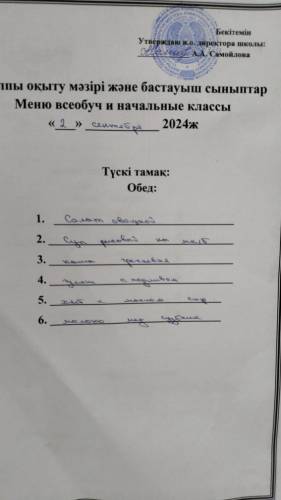 Бекітемін
Утверждаю и.о. директора школы:
А.А. Самойлова
лпы оқыту мәзірі және бастауыш сыныптар
Меню всеобуч и начальные классы
« 2 » сентября 2024ж
Түскі тамақ:
Обед:
1. Салат овощной
2. Суп рисовый на
3. каша гречневая
4. с подливой
5. хлеб с маслом сыр
6. молоко